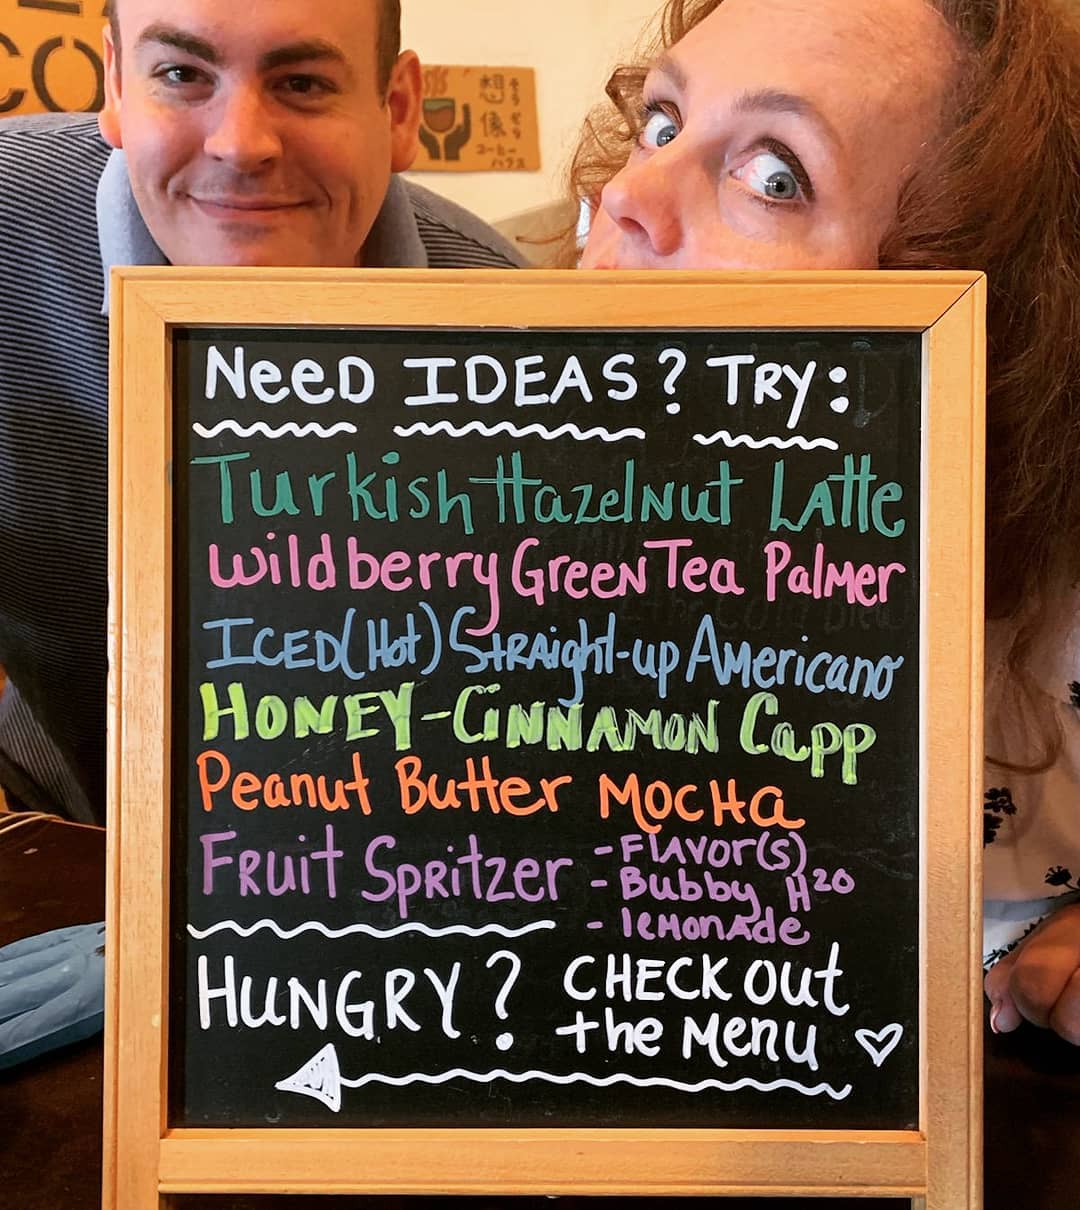 CO
想像
コーヒー
ハウス
NeeD IDEAS? TRY:
Turkish Hazelnut Latte
Wildberry Green Tea Palmer
ICED (Hot) Straight-up Americano
HONEY-CINNAMON Capp
Peanut Butter MOCHa
FRuit Spritzer - FLAvor(s)
- Bubby H20
- lemonAde
HUNGRY? CHECK out
the Menu